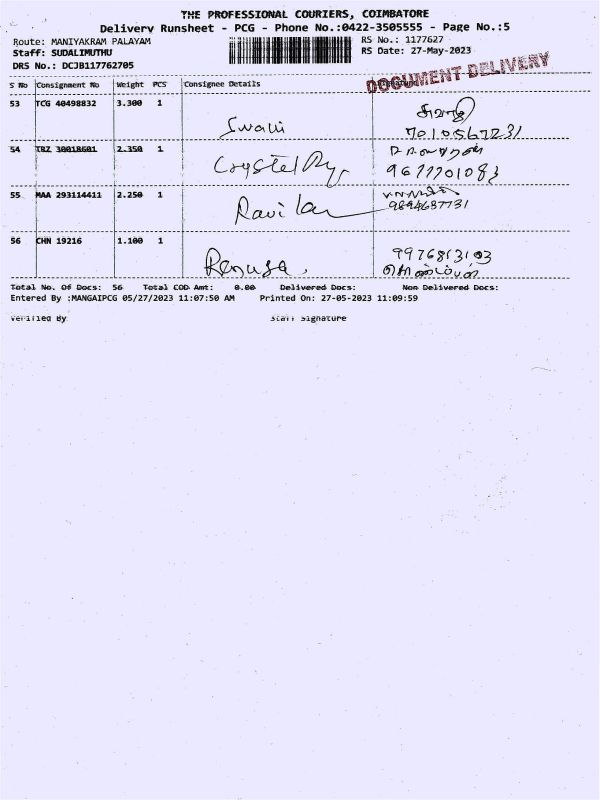 THE PROFESSIONAL COURIERS, COIMBATORE
Delivery Runsheet - PCG - Phone No.:0422-3505555 - Page No.:5
Route: MANIYAKRAM PALAYAM
RS No.: 1177627
Staff: SUDALIMUTHU
RS Date: 27-May-2023
DRS No.: DCJB117762705
DOCUMENT DELIVERY
S No Consignment No Weight PCS Consignee Details
53 TCG 40498832 3.300 1
Swami
7010567231
54 TBZ 30018601 2.350 1
Crystel
9677701083
55 MAA 293114411 2.250 1
Ravi
9894687731
56 CHN 19216 1.100 1
9976813103
Renuga
Total No. Of Docs: 56 Total COD Amt: 0.00 Delivered Docs: Non Delivered Docs:
Entered By :MANGAIPCG 05/27/2023 11:07:50 AM Printed On: 27-05-2023 11:09:59
Verified By Staff Signature